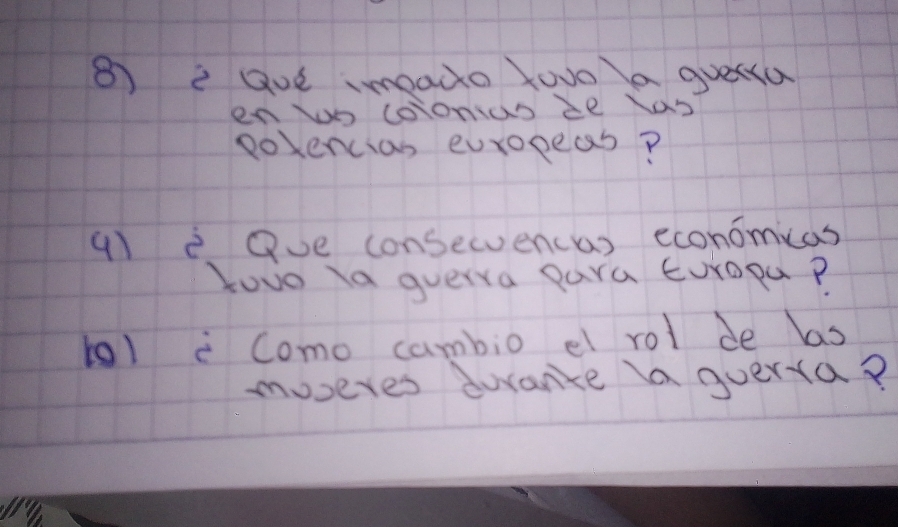 8) ¿ Qué impacto tuvo la guerra
en las colonias de las
potencias europeas ?
9) ¿ Que consecuencias económicas
tuvo la guerra para Europa ?
10) ¿ Como cambio el rol de las
mujeres durante la guerra ?